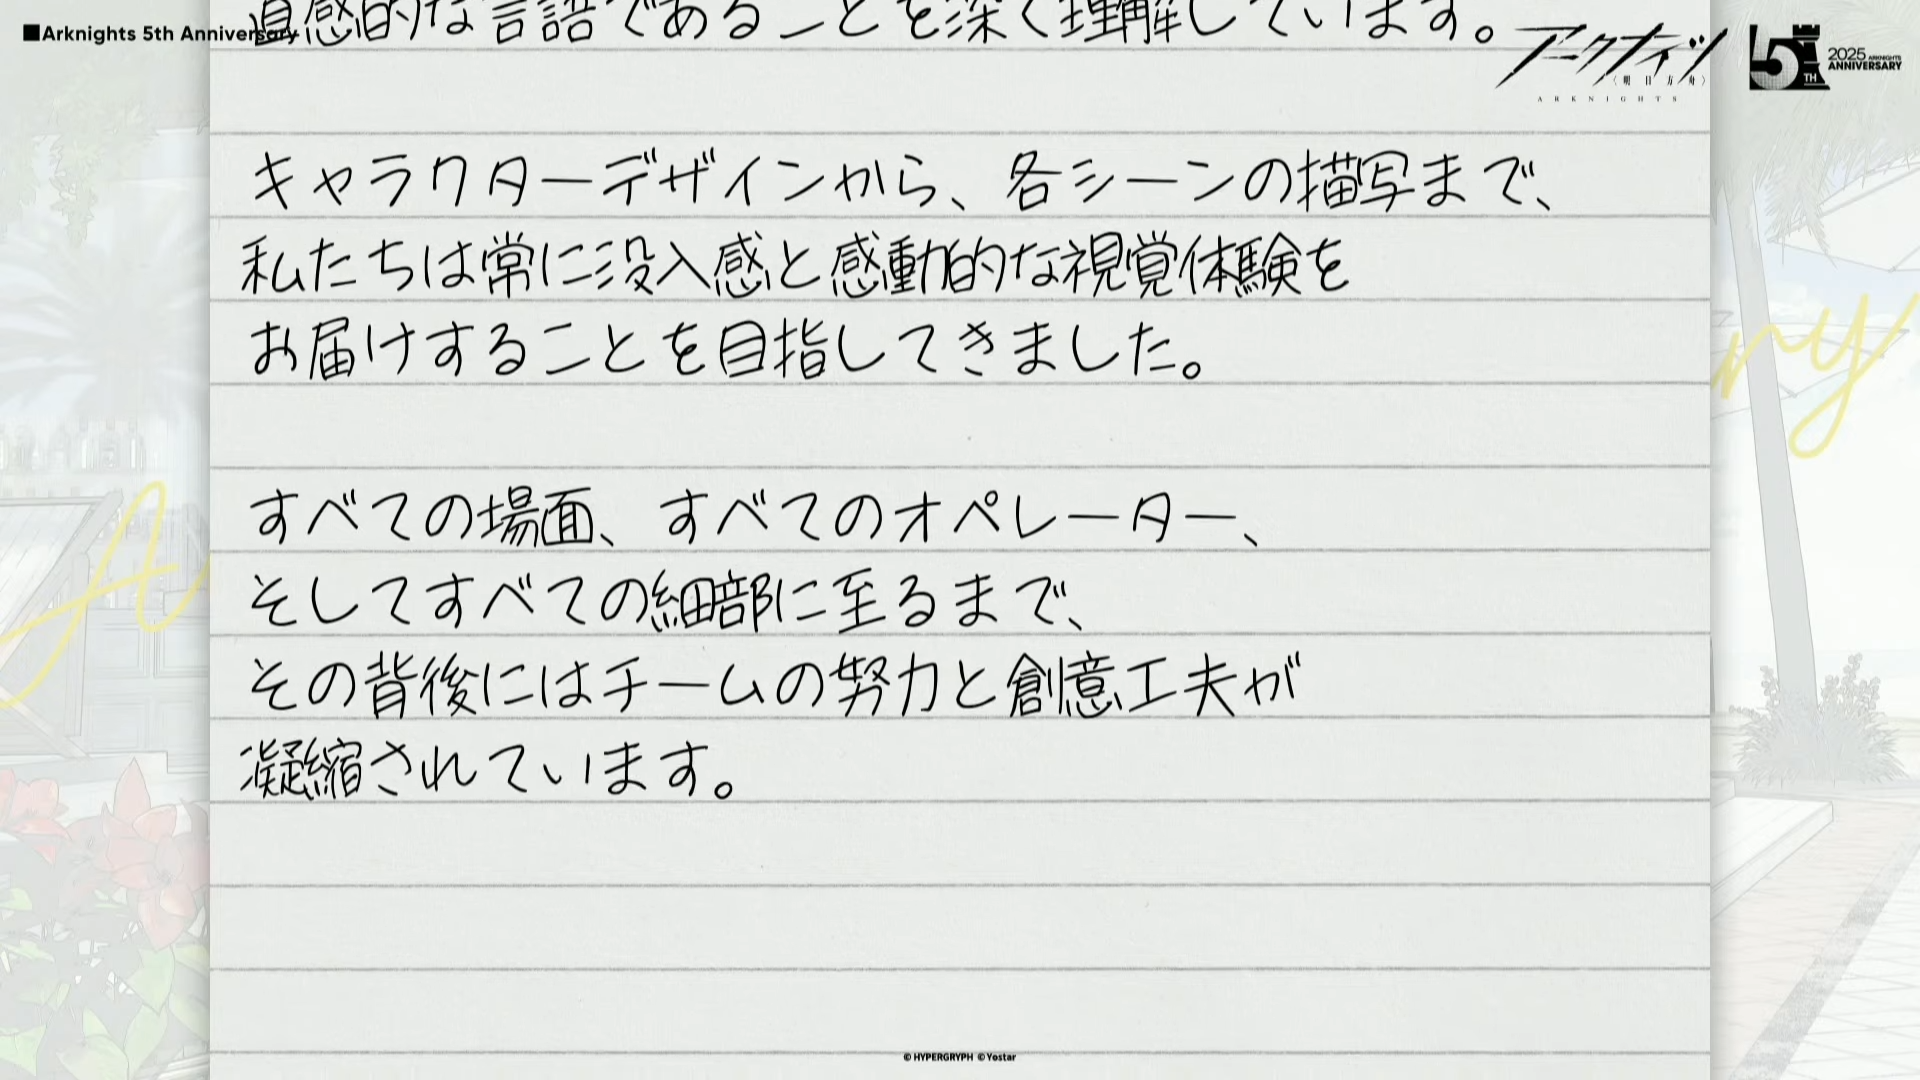 ■Arknights 5th Anniversary
直感的な言語であることを深く理解しています。
アークナイツ
〈明日方舟〉
ARKNIGHTS
5TH
2025 ARKNIGHTS
ANNIVERSARY
キャラクターデザインから、各シーンの描写まで、
私たちは常に没入感と感動的な視覚体験を
お届けすることを目指してきました。
すべての場面、すべてのオペレーター、
そしてすべての細部に至るまで、
その背後にはチームの努力と創意工夫が
凝縮されています。
© HYPERGRYPH © Yostar